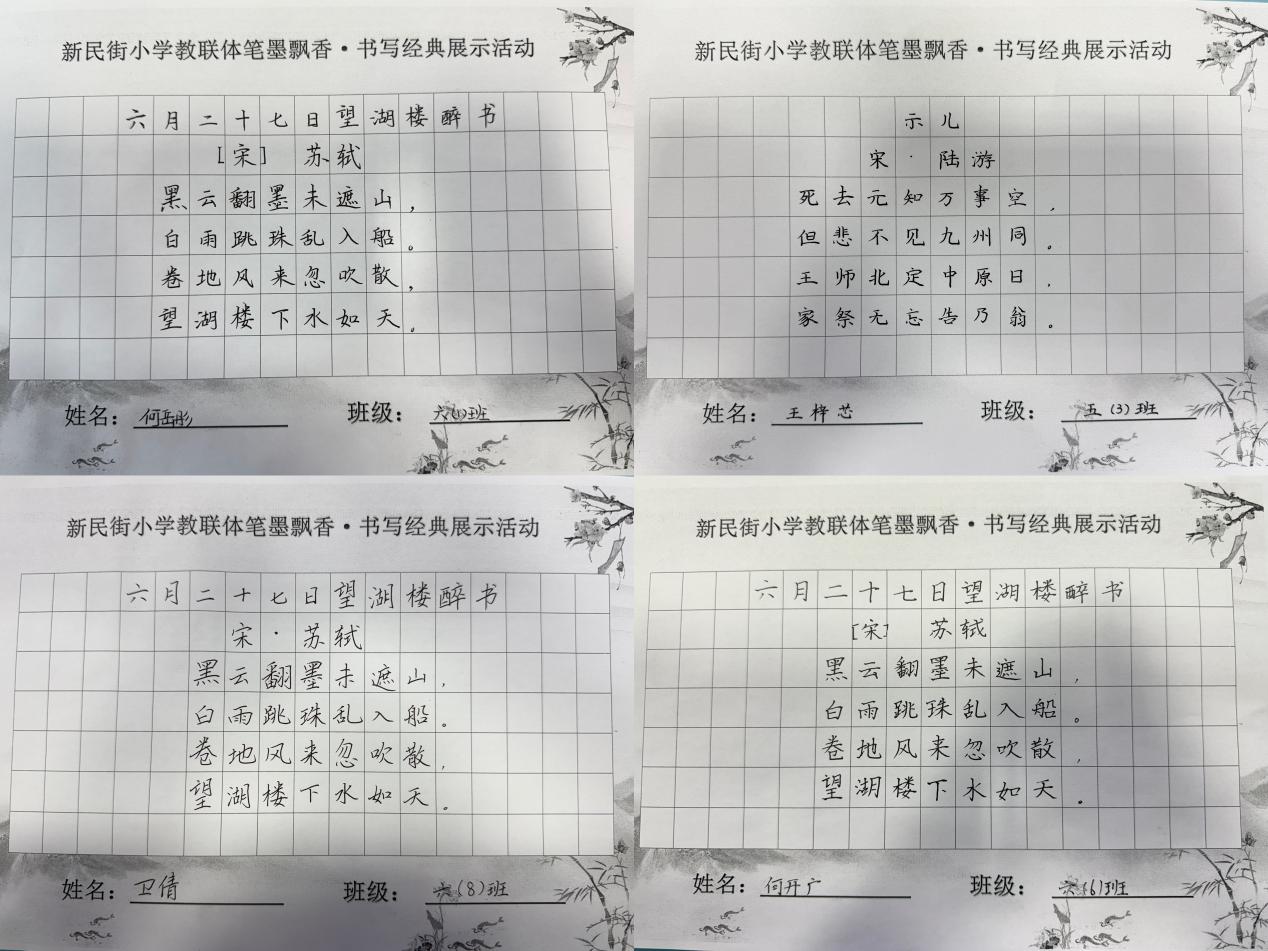 新民街小学教联体笔墨飘香·书写经典展示活动
六月二十七日望湖楼醉书
[宋] 苏轼
黑云翻墨未遮山，
白雨跳珠乱入船。
卷地风来忽吹散，
望湖楼下水如天。
姓名：何岳彤 班级：六(1)班
新民街小学教联体笔墨飘香·书写经典展示活动
示儿
宋·陆游
死去元知万事空，
但悲不见九州同。
王师北定中原日，
家祭无忘告乃翁。
姓名：王梓芯 班级：五(3)班
新民街小学教联体笔墨飘香·书写经典展示活动
六月二十七日望湖楼醉书
宋·苏轼
黑云翻墨未遮山，
白雨跳珠乱入船。
卷地风来忽吹散，
望湖楼下水如天。
姓名：卫倩 班级：六(8)班
新民街小学教联体笔墨飘香·书写经典展示活动
六月二十七日望湖楼醉书
[宋] 苏轼
黑云翻墨未遮山，
白雨跳珠乱入船。
卷地风来忽吹散，
望湖楼下水如天。
姓名：何开广 班级：六(6)班